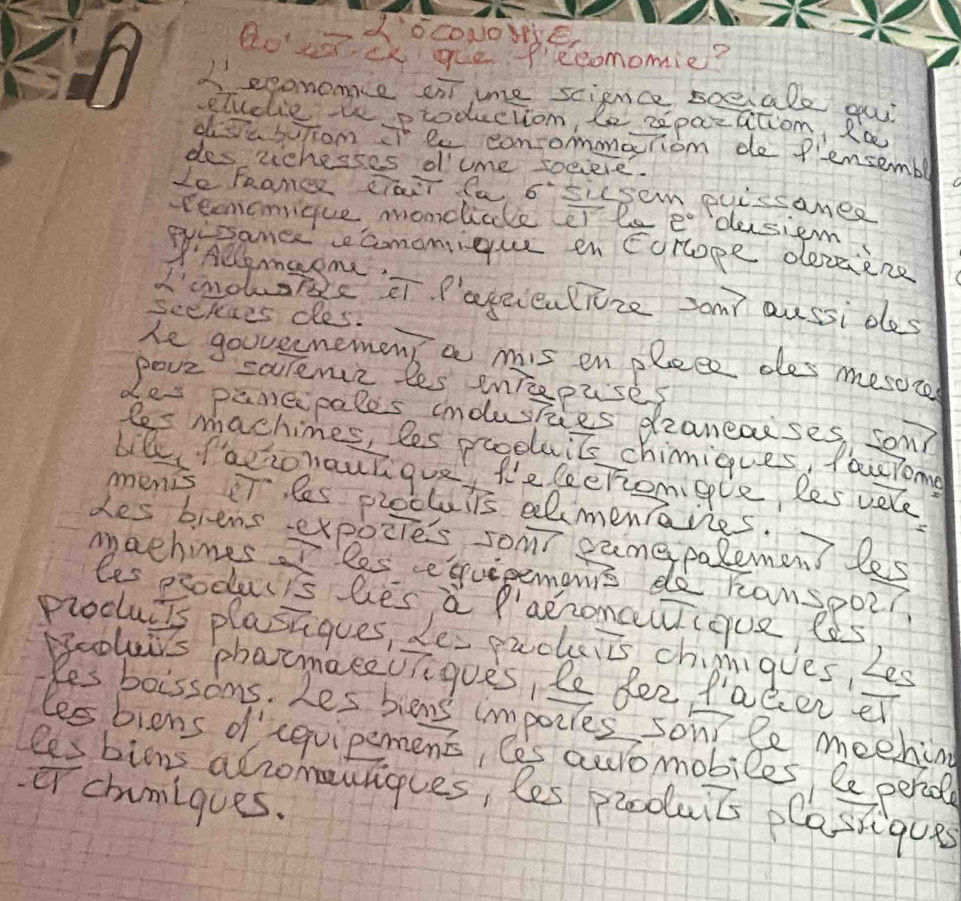 L'OCONOMIE,
Qo'est-ce que l'ecomomie?
L'economice est ume science sociale qui
etudie la production, la reparation, la
distrubution et la consommation de l'ensembl
des richesses d'ume societe.
Le France etait la 6° siesem puissance
economique momdiale et la 2° deusiem
puissance economique en Europe derrière
l'Allemagne.
L'imdustrie et l'agriculture sont aussi des
secteurs cles.
Le gouvernement a mis en place des mesures
pour soutenir les entreprises
Les principales imdustries francaises sont
les machines, les produits chimiques, l'automo=
bile, l'aéronautique, l'electronique, les vete=
ments et les produits alimentaires.
Les biens exportés sont primcipalement les
machimes et les equipements de transport,
les produits liés à l'aéronautique les
produits plastiques, Les produits chimiques, Les
produits pharmaceutiques, le fer, l'acier et
les boissoms. Les biens importés sont le mochin
les biens d'equipement, les automobiles, le petrole
les biens aéronautiques, les produits plastiques
et chimiques.